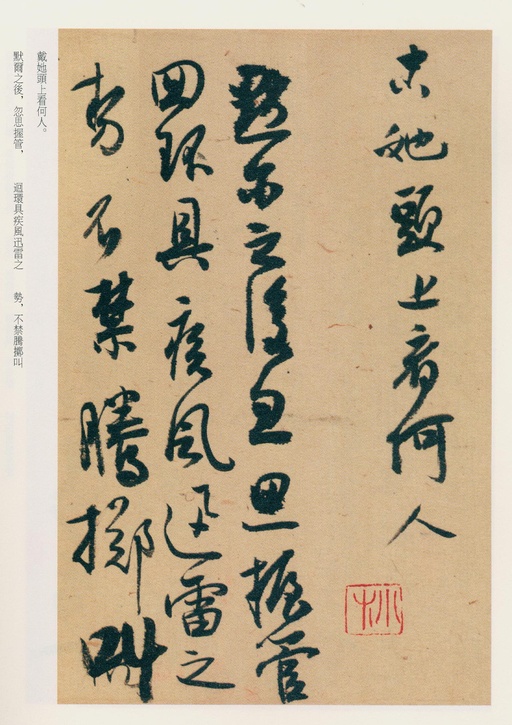 戴她頭上看何人
默爾之後忽思握管
回環具疾風迅雷之
勢不禁騰擲叫
戴她頭上看何人。
默爾之後，忽思握管，　迴環具疾風迅雷之　勢，不禁騰擲叫